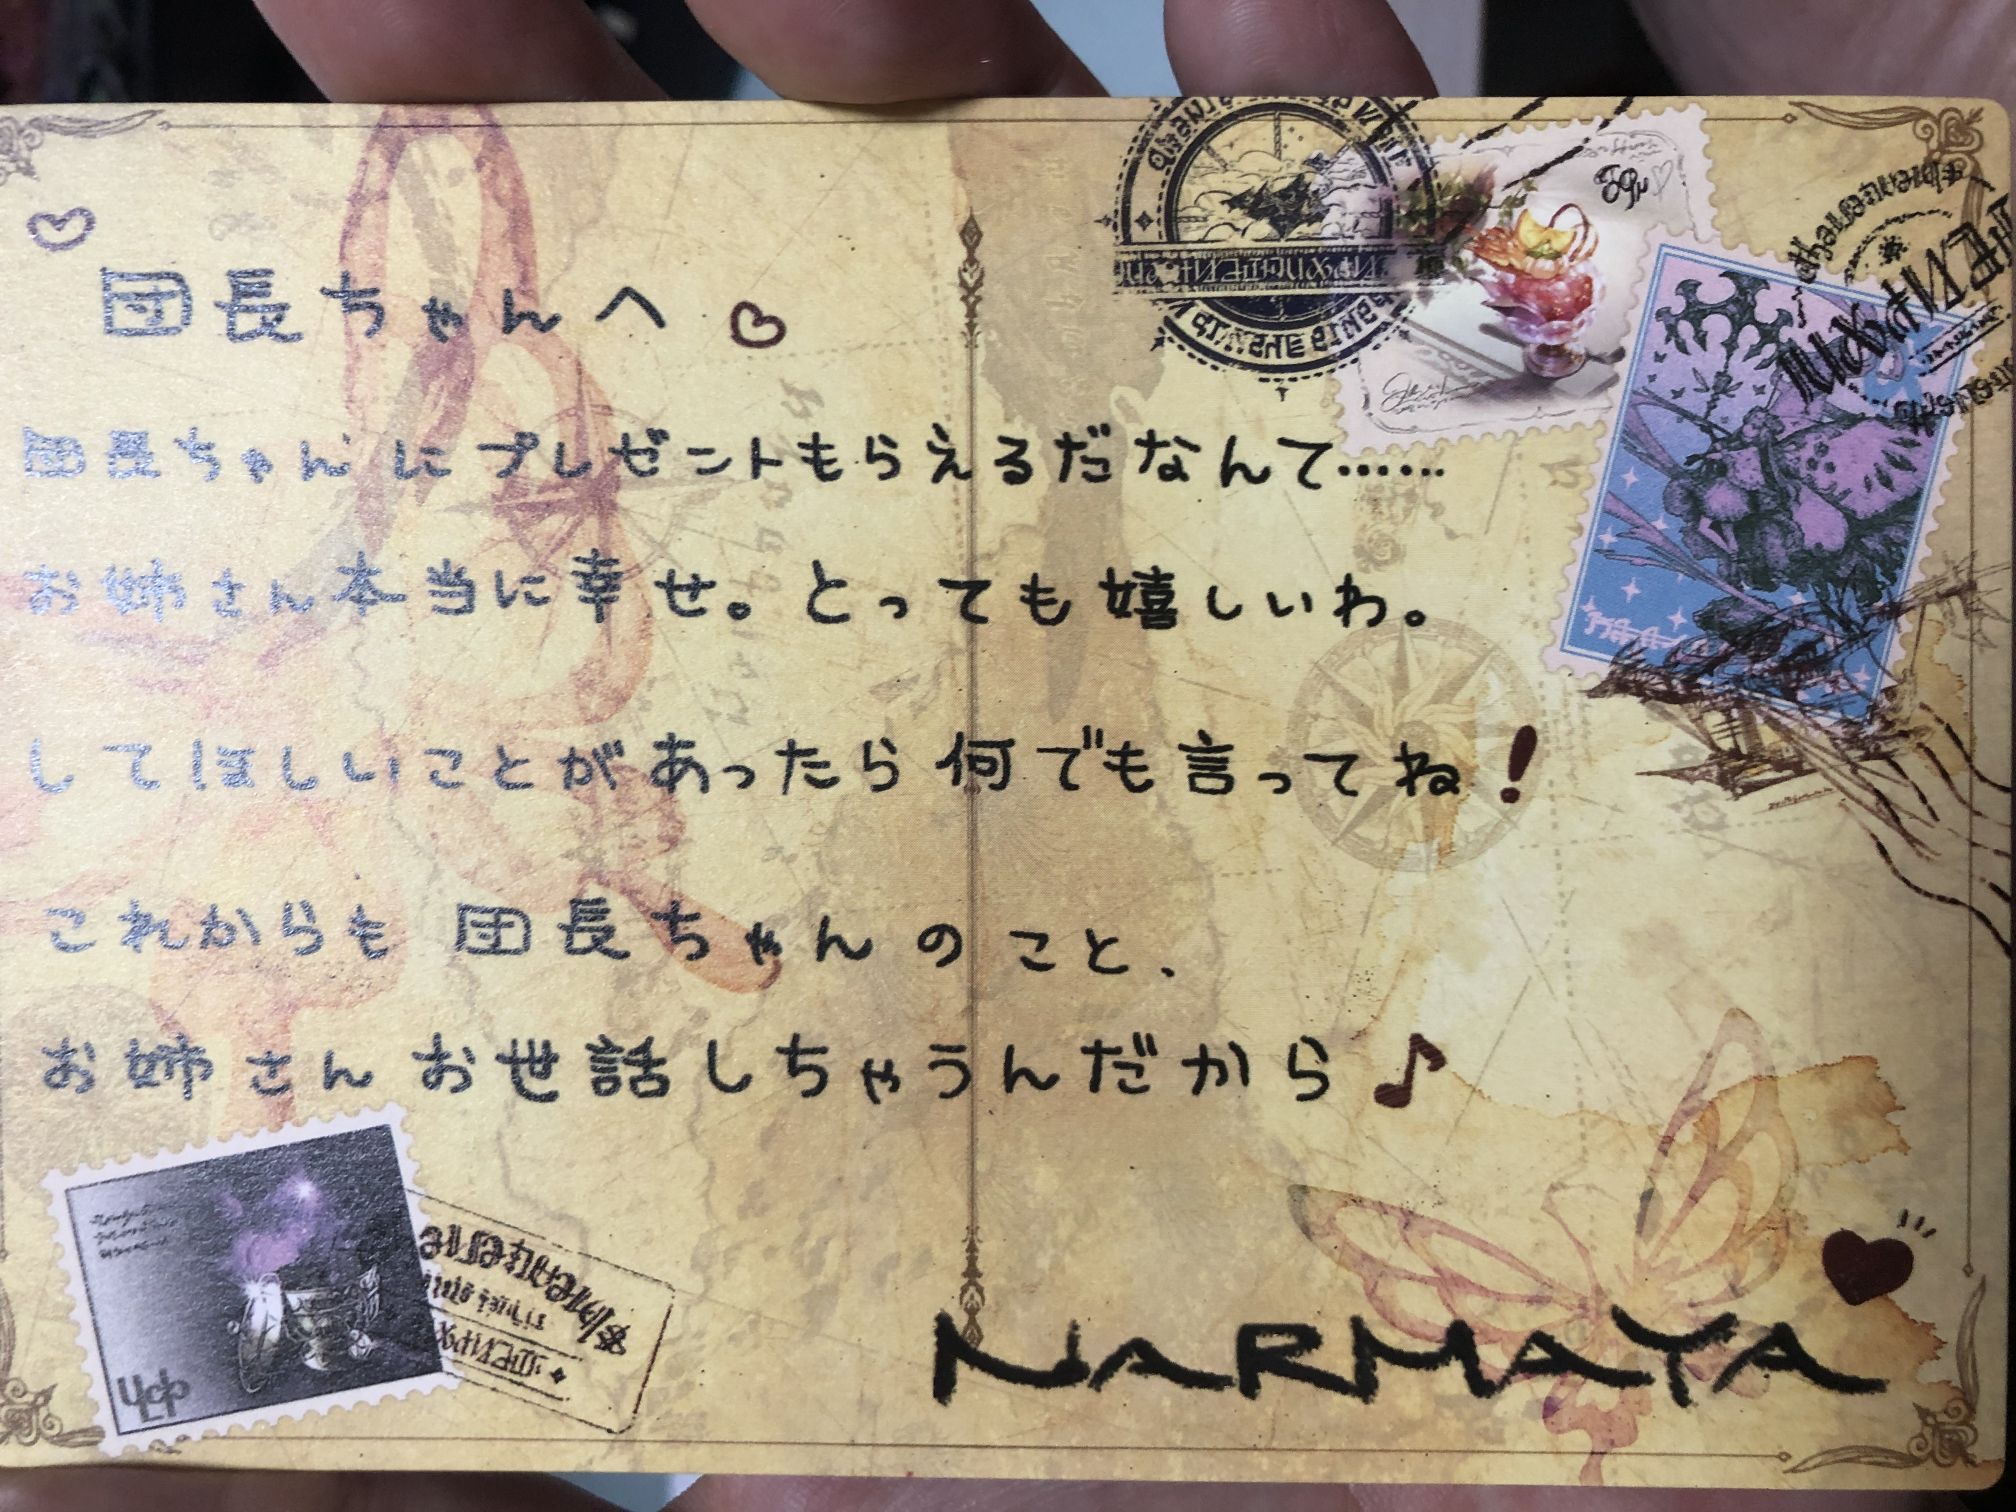 団長ちゃんへ
団長ちゃんにプレゼントもらえるだなんて……
お姉さん本当に幸せ。とっても嬉しいわ。
してほしいことがあったら何でも言ってね！
これからも団長ちゃんのこと、
お姉さんお世話しちゃうんだから♪
NARMAYA